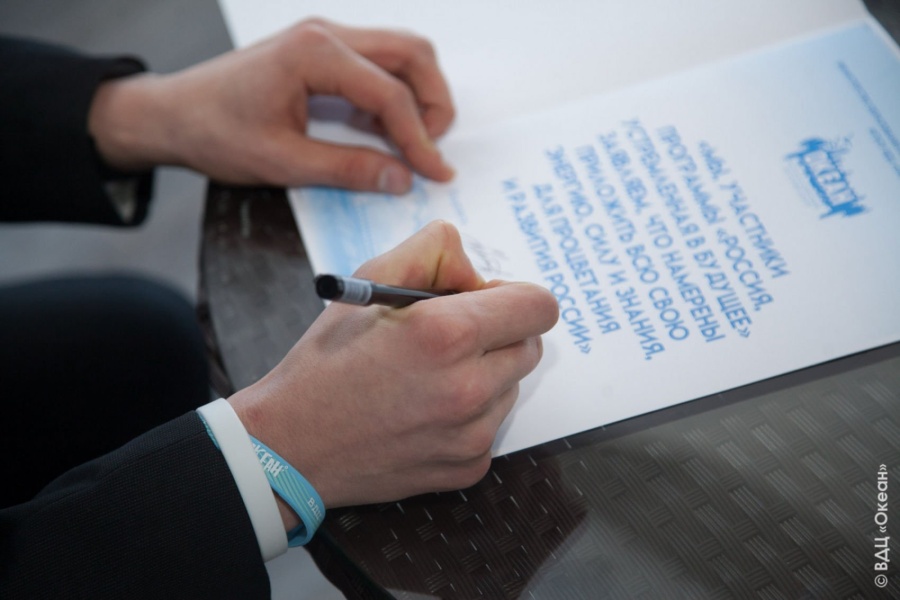 ОКЕАН
«МЫ, УЧАСТНИКИ
ПРОГРАММЫ «РОССИЯ,
УСТРЕМЛЕННАЯ В БУДУЩЕЕ»
ЗАЯВЛЯЕМ, ЧТО НАМЕРЕНЫ
ПРИЛОЖИТЬ ВСЮ СВОЮ
ЭНЕРГИЮ, СИЛУ И ЗНАНИЯ,
ДЛЯ ПРОЦВЕТАНИЯ
И РАЗВИТИЯ РОССИИ»
ОКЕАН
© ВДЦ «Океан»